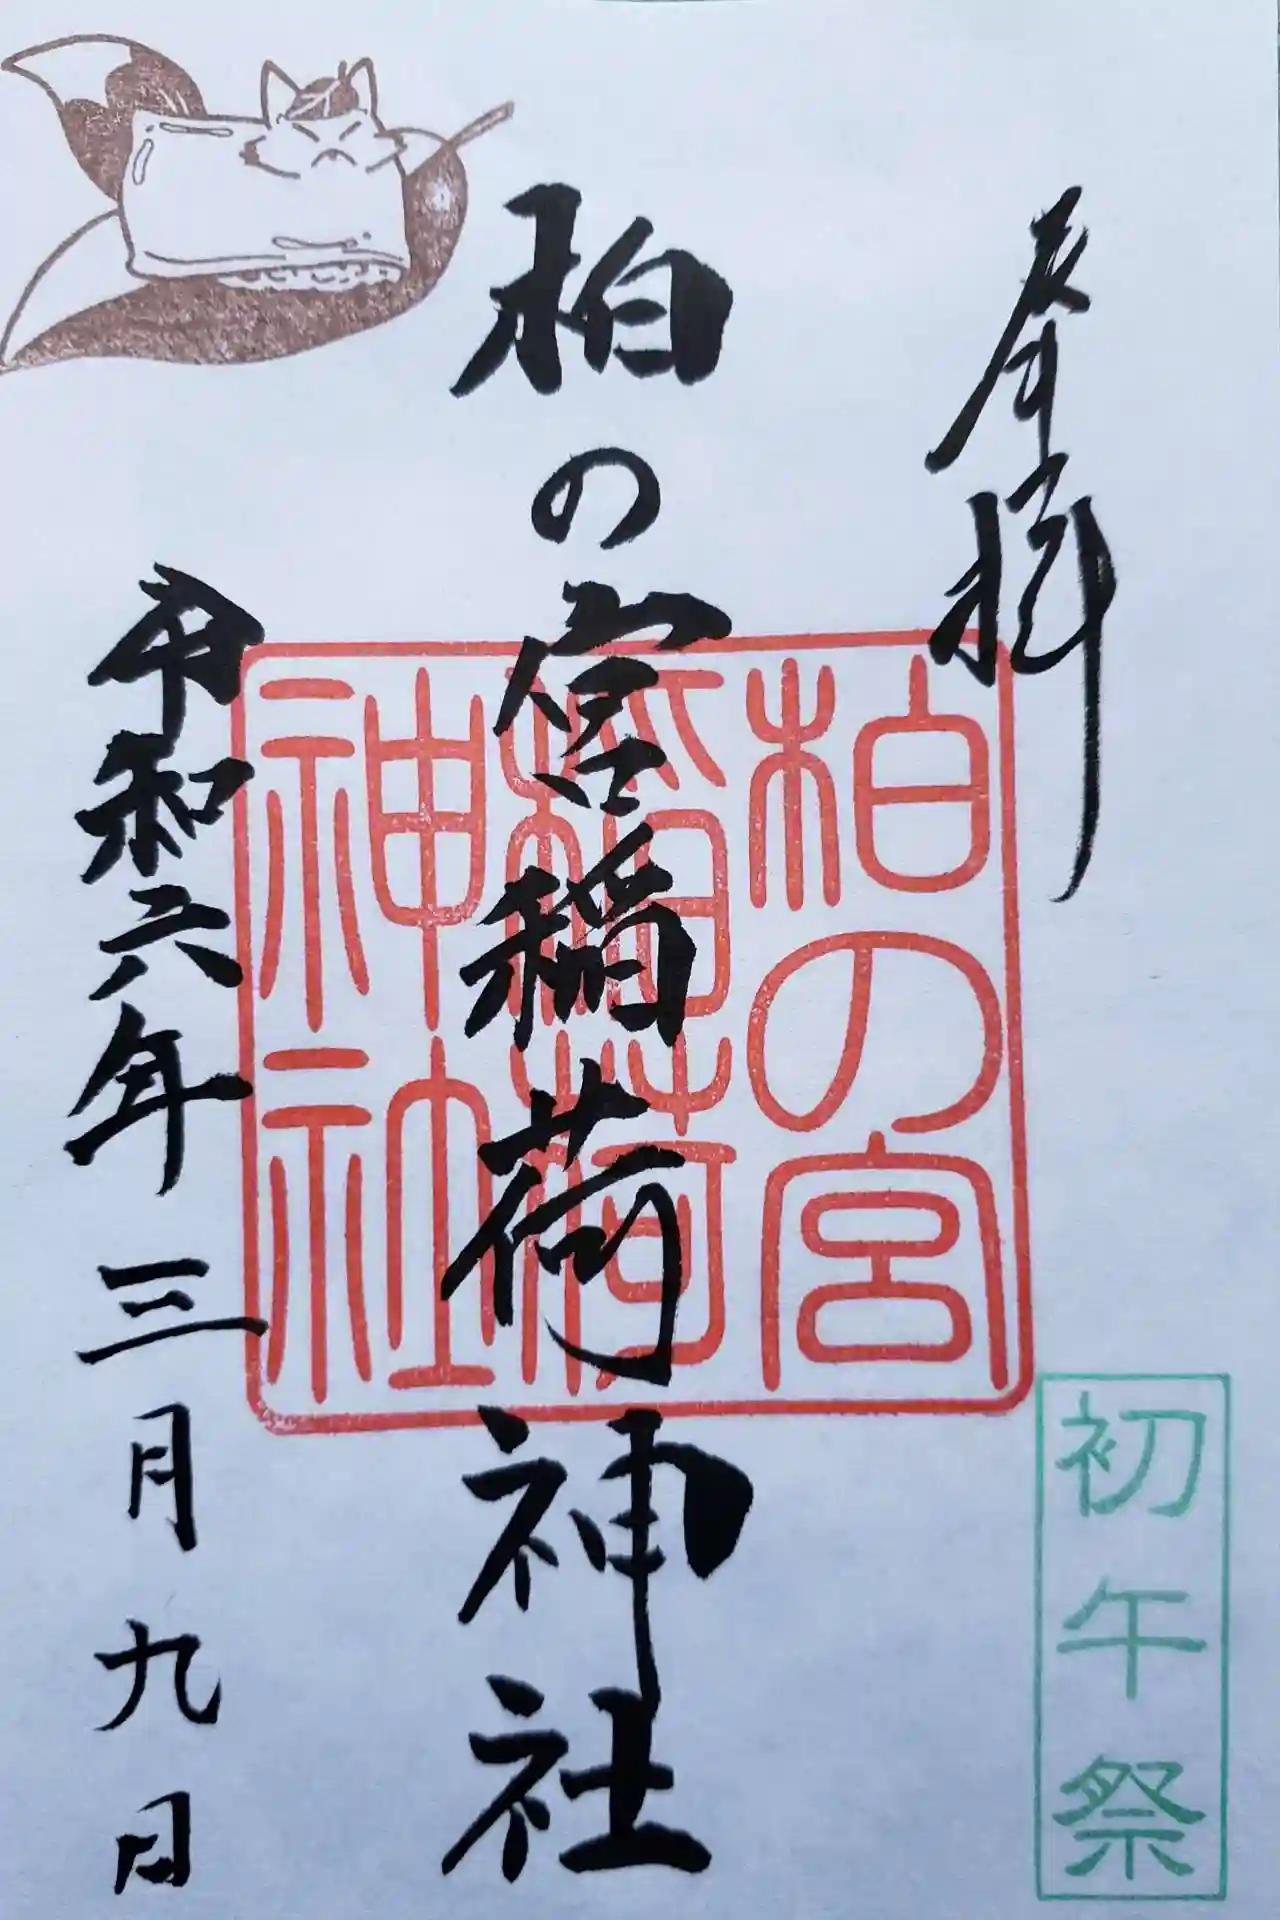 奉拝
柏の宮稲荷神社
柏の宮
稲荷
神社
令和六年三月九日
初午祭